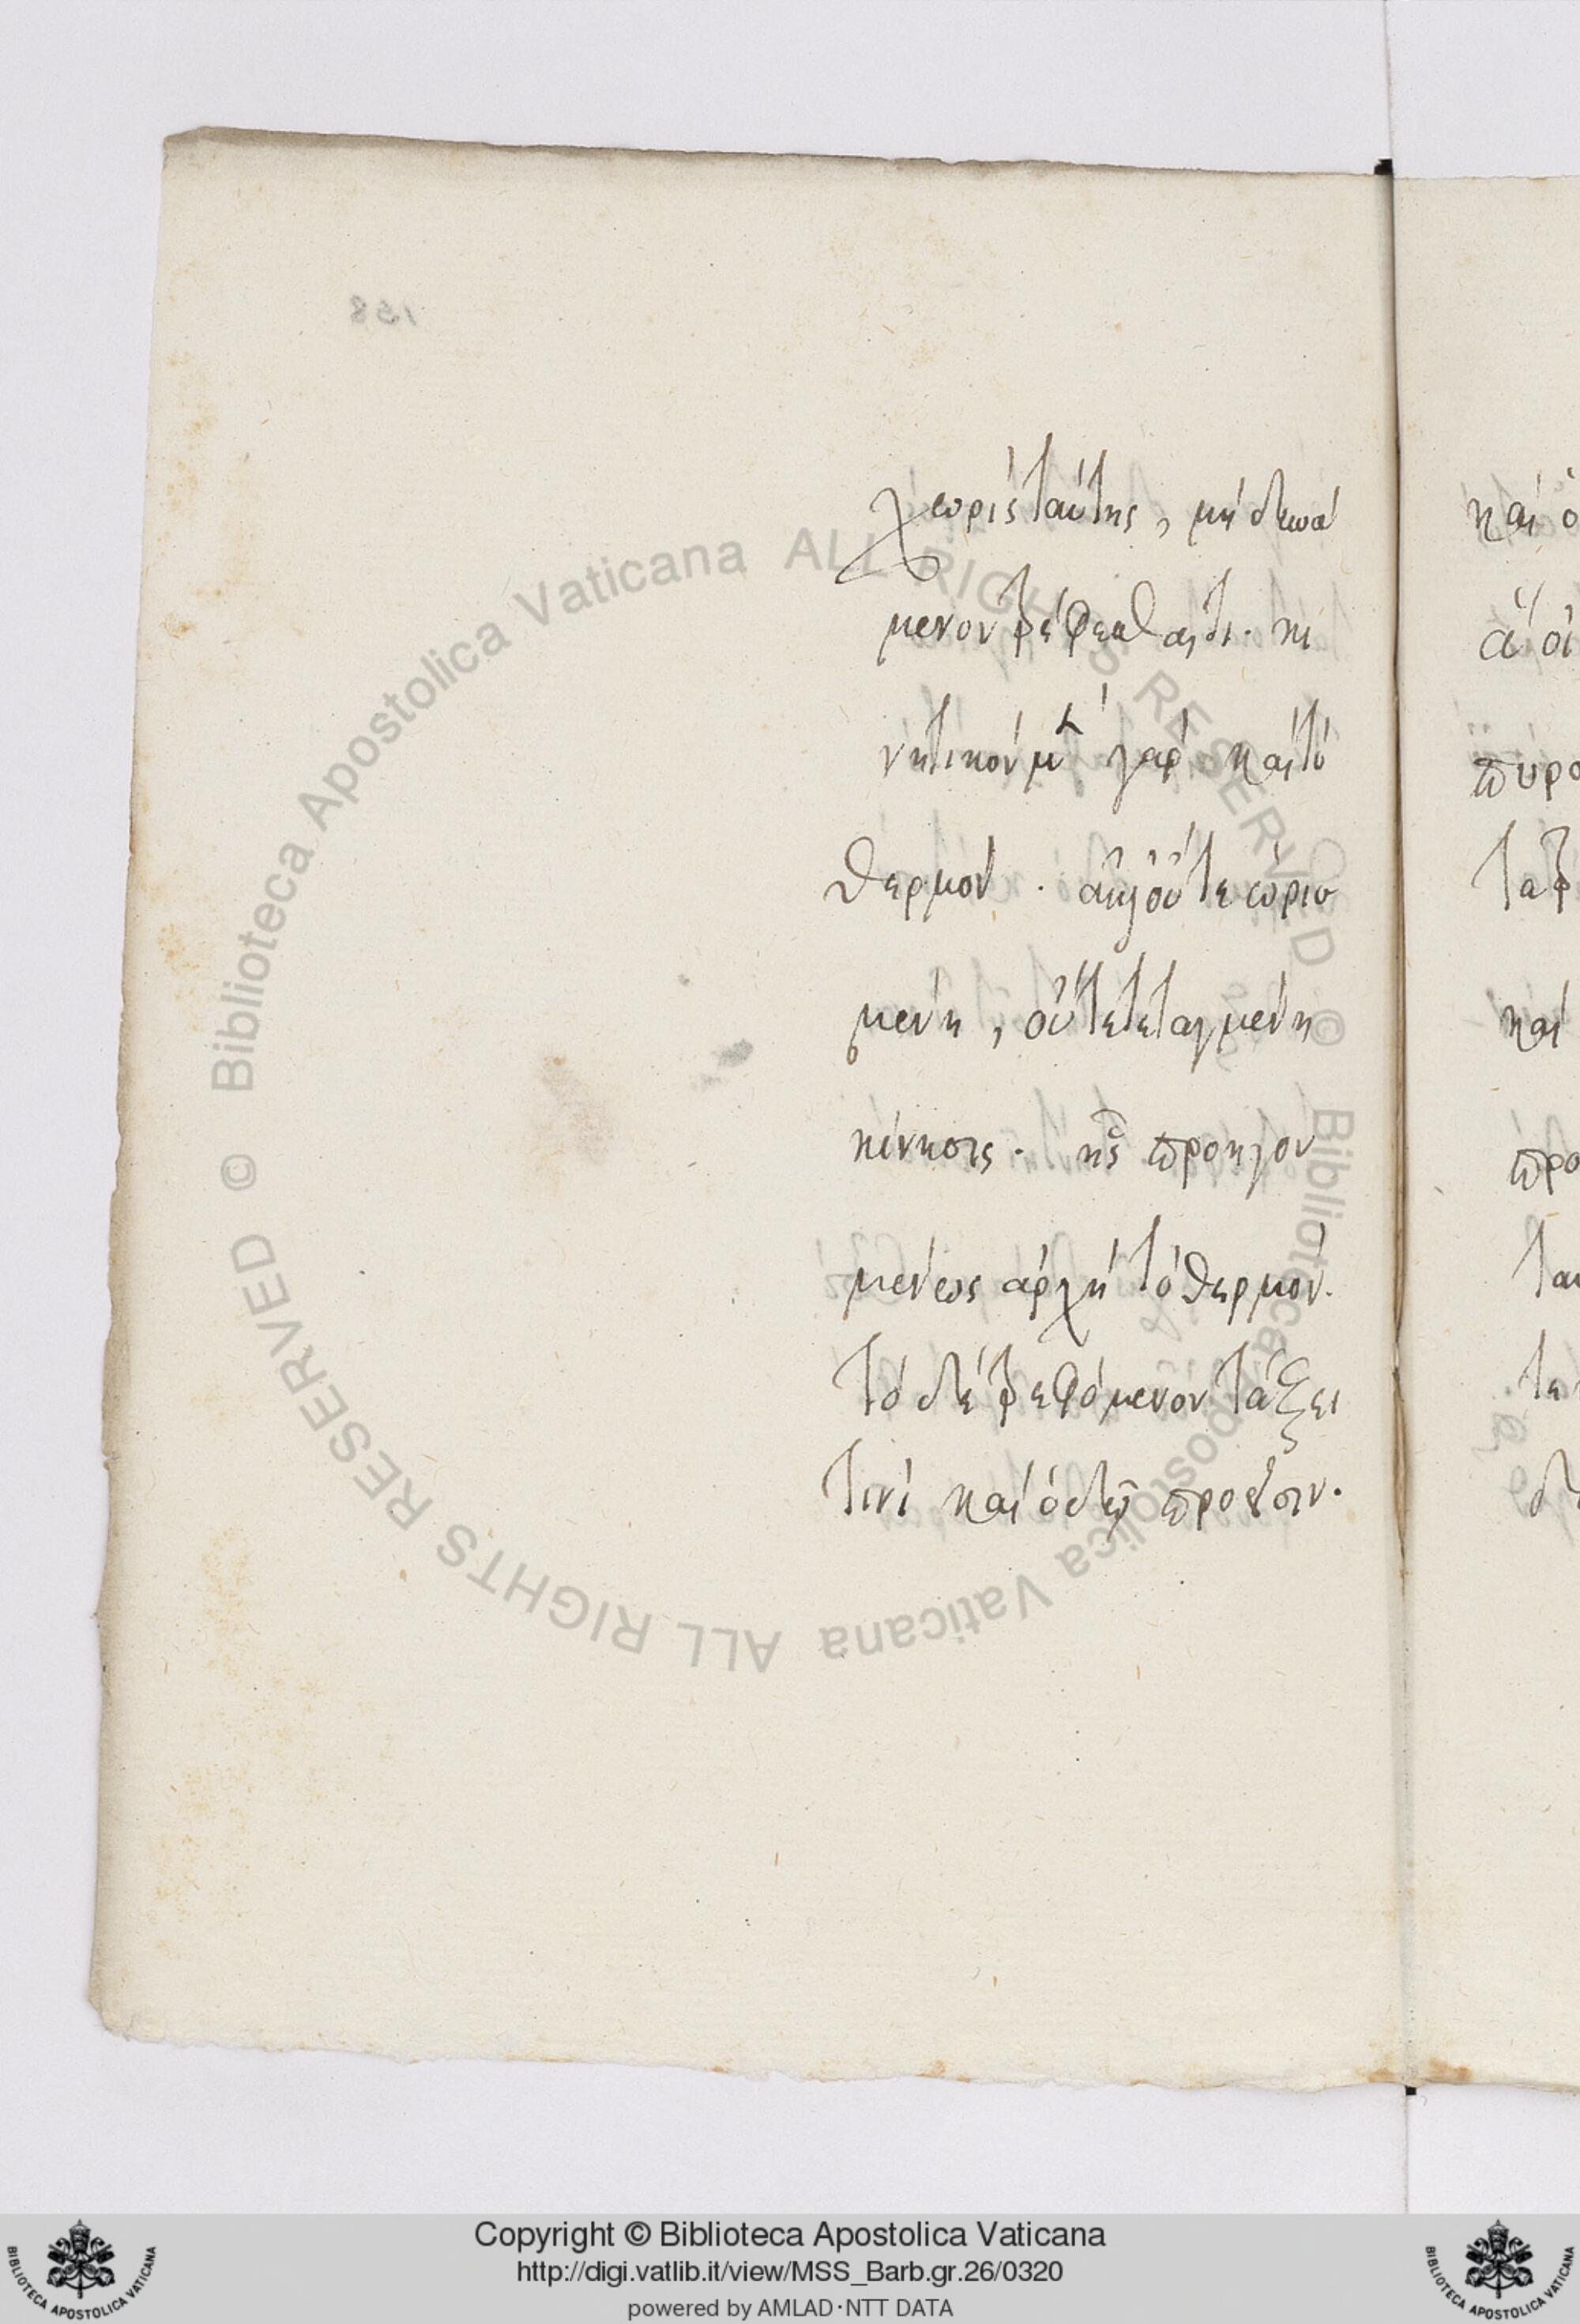 χωρὶς ταύτης, μὴ δυνά
μενον τρέφεσθαί τι. κι
νητικὸν μὲν γὰρ καὶ τὸ
θερμόν. ἀλλ' οὔτε ὡρισ
μένη, οὔτε τεταγμένη
κίνησις. ἧς προηγου
μένως ἀρχὴ τὸ θερμόν.
τὸ δὲ τρεφόμενον τάξει
τινὶ καὶ ὁδῷ πρόεισιν.
καὶ
ἃ οἱ
πυρο
και
προ
τε
158
© Biblioteca Apostolica Vaticana ALL RIGHTS RESERVED
© Biblioteca Apostolica Vaticana ALL RIGHTS RESERVED
Copyright © Biblioteca Apostolica Vaticana
http://digi.vatlib.it/view/MSS_Barb.gr.26/0320
powered by AMLAD·NTT DATA
BIBLIOTECA APOSTOLICA VATICANA
BIBLIOTECA APOSTOLICA VATICANA